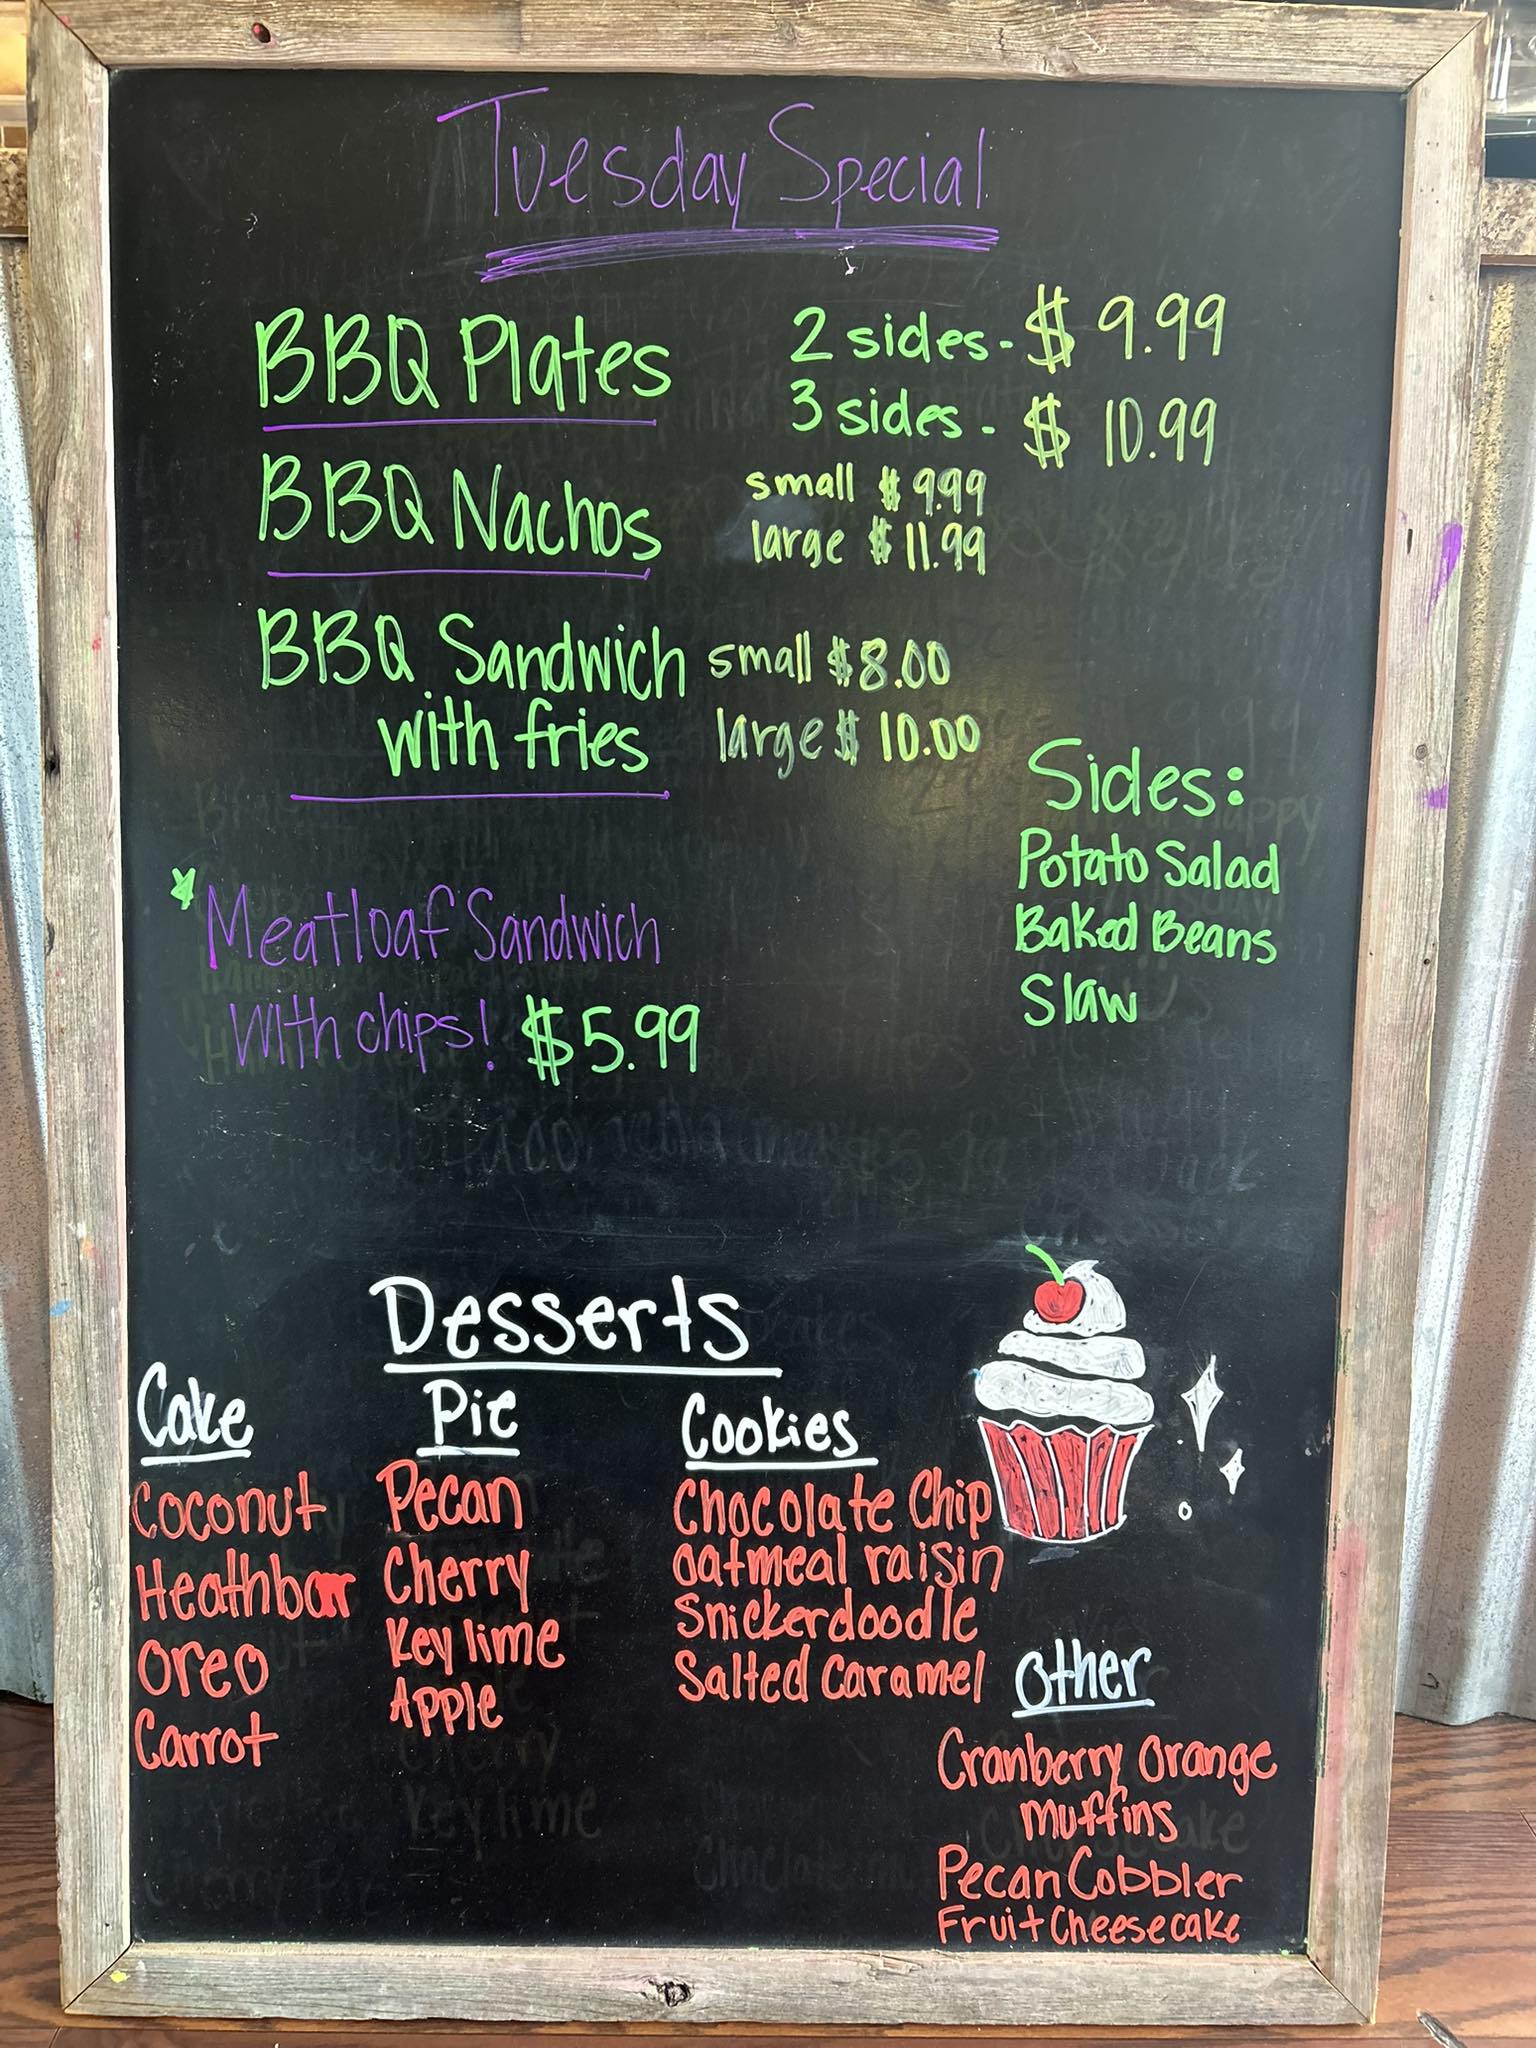 Tuesday Special
BBQ Plates
2 sides - $ 9.99
3 sides - $ 10.99
BBQ Nachos
small $ 9.99
large $ 11.99
BBQ Sandwich
with fries
small $8.00
large $ 10.00
Sides:
Potato Salad
Baked Beans
Slaw
Meatloaf Sandwich
With chips! $5.99
Desserts
Cake
Coconut
Heathbar
Oreo
Carrot
Pie
Pecan
Cherry
Key lime
Apple
Cookies
Chocolate Chip
Oatmeal raisin
Snickerdoodle
Salted Caramel
Other
Cranberry Orange
Muffins
Pecan Cobbler
Fruit Cheesecake